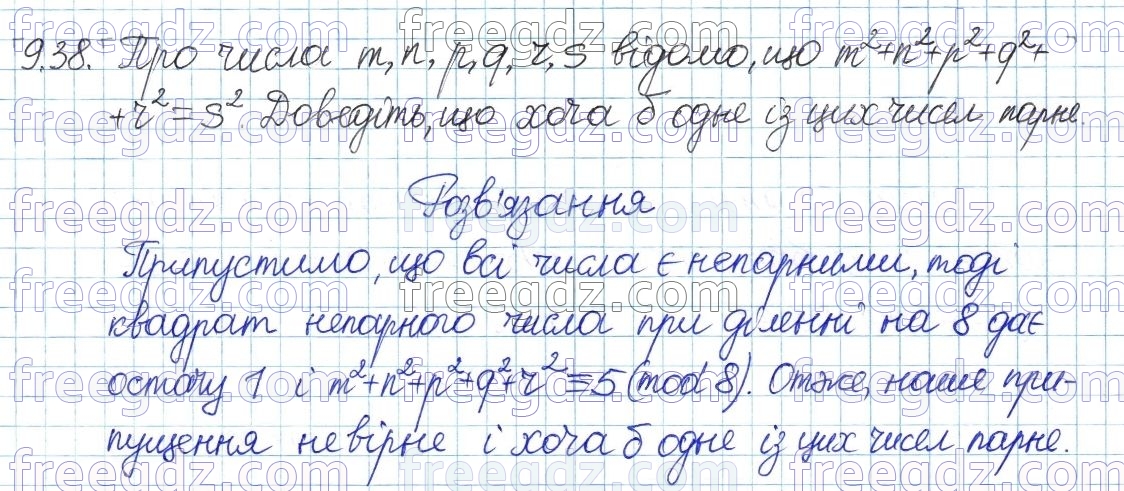 freegdz.com freegdz.com freegdz.com
9.38. Про числа m, n, p, q, r, s відомо, що m²+n²+p²+q²+
+r²=s². Доведіть, що хоча б одне із цих чисел парне.
Розв'язання
Припустимо, що всі числа є непарними, тоді
квадрат непарного числа при діленні на 8 дає
остачу 1 і m²+n²+p²+q²+r²≡5 (mod 8). Отже, наше при-
пущення невірне і хоча б одне із цих чисел парне.